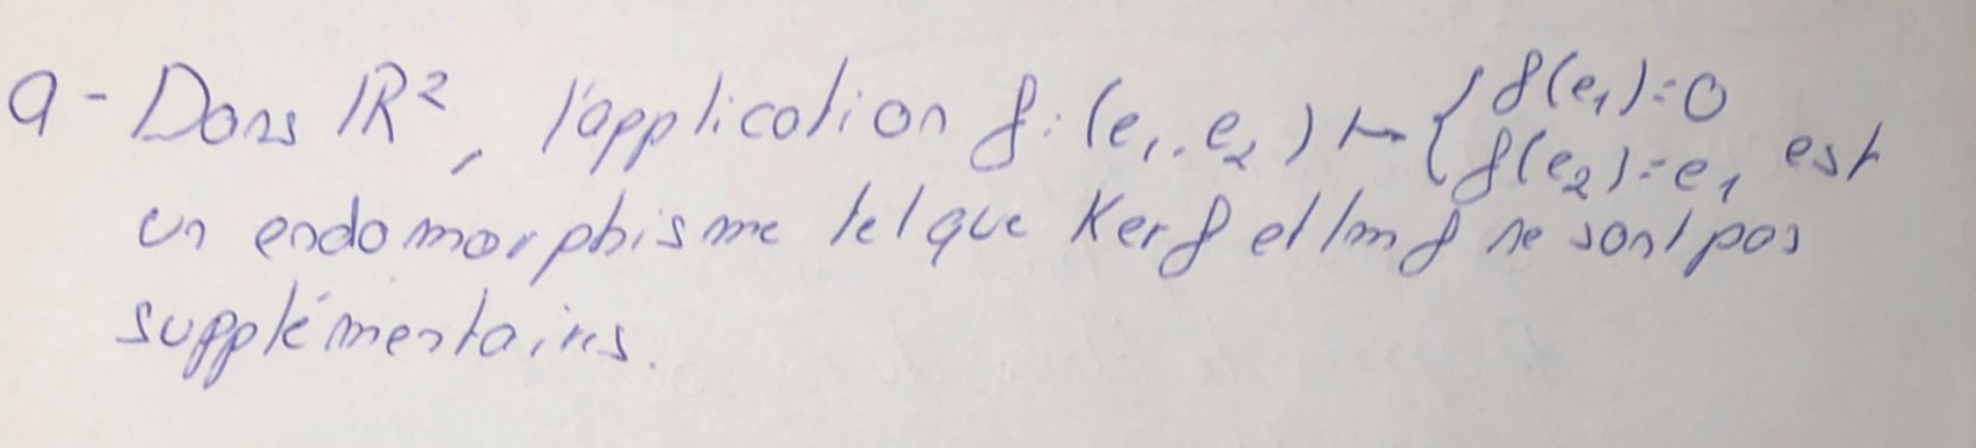 a - Dans IR², l'application f : (e₁, e₂) ↦ { f(e₁) = 0 f(e₂) = e₁ est
un endomorphisme tel que Ker f et Im f ne sont pas
supplémentaires.